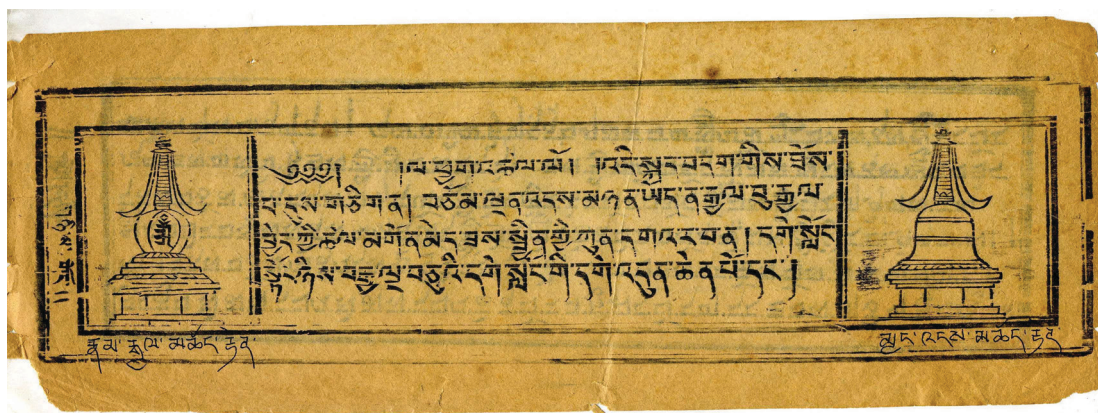 ༄༅༅། །ལ་ཕྱག་འཚལ་ལོ། །འདི་སྐད་བདག་གིས་ཐོས་
པ་དུས་གཅིག་ན། བཅོམ་ལྡན་འདས་མཉན་ཡོད་ན་རྒྱལ་བུ་རྒྱལ་
བྱེད་ཀྱི་ཚལ་མགོན་མེད་ཟས་སྦྱིན་གྱི་ཀུན་དགའ་ར་བ་ན། དགེ་སློང་
སྟོང་ཉིས་བརྒྱ་ལྔ་བཅུའི་དགེ་སློང་གི་དགེ་འདུན་ཆེན་པོ་དང་།
རྣམ་རྒྱལ་མཆོད་རྟེན་
མྱང་འདས་མཆོད་རྟེན